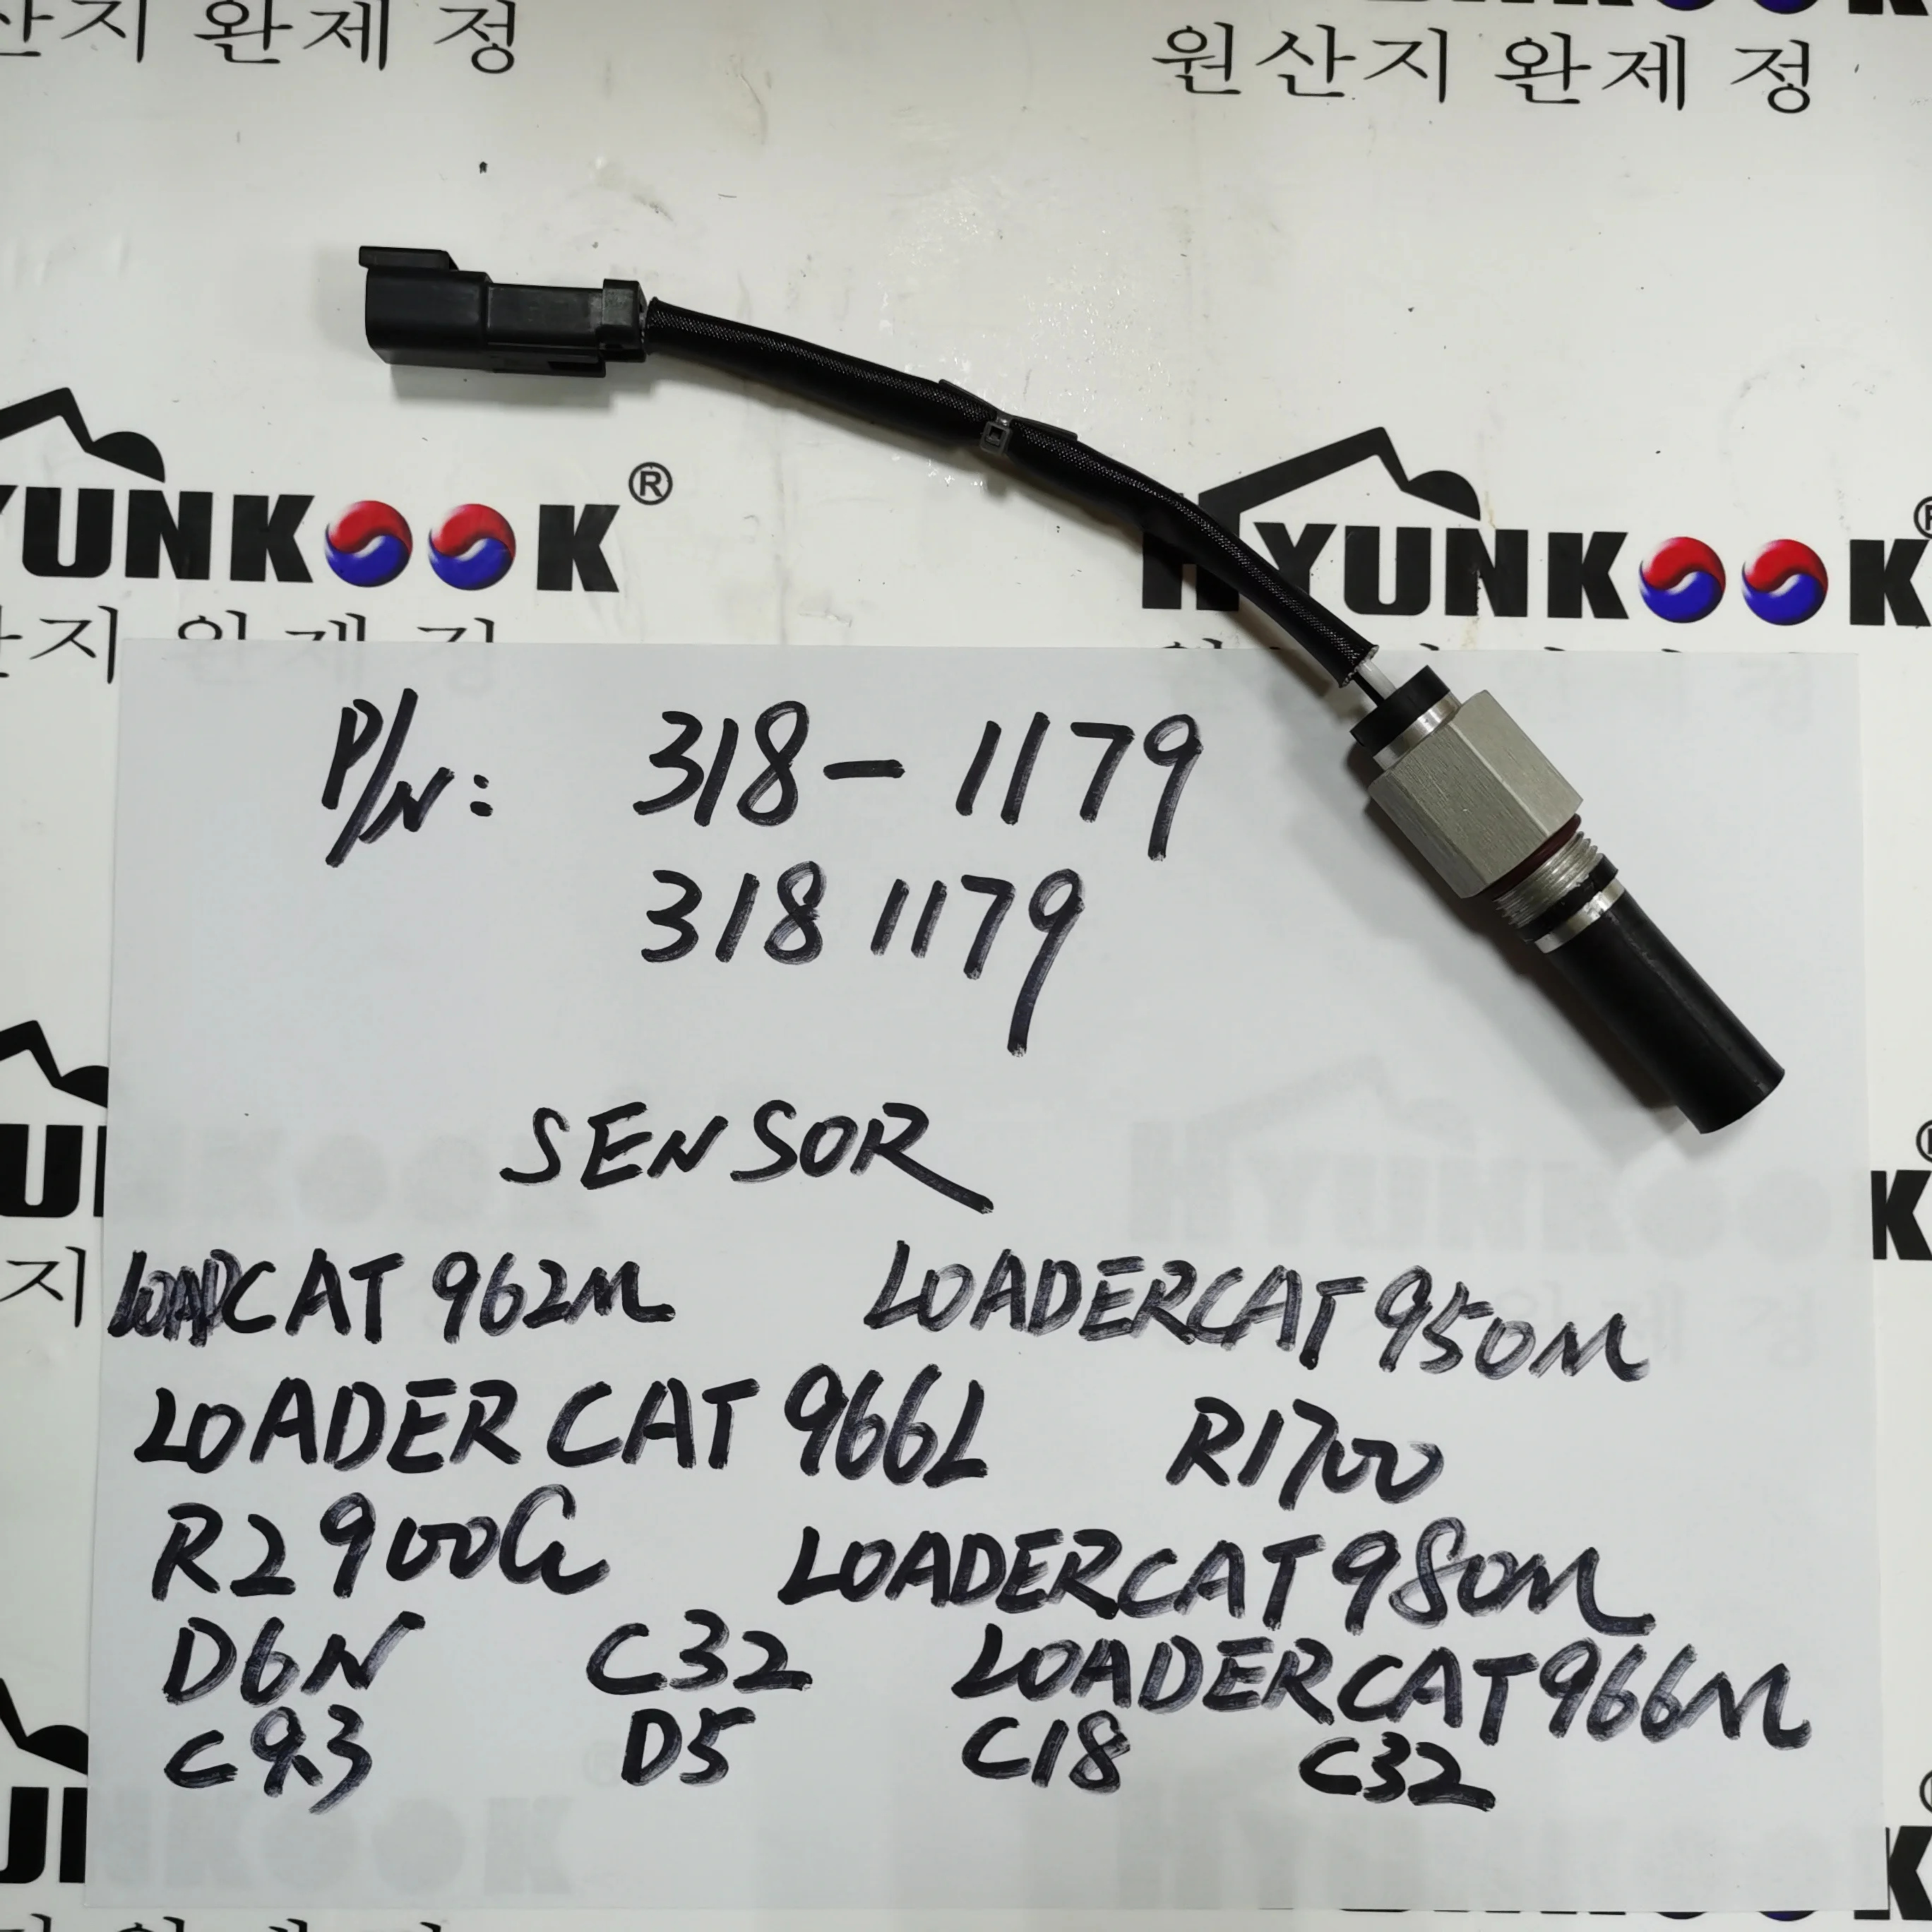 산지 완제 정
원산지 완제 정
YUNKOOK®
HYUNKOOK
P/N: 318-1179
318 1179
SENSOR
LOADCAT 962M LOADERCAT 950M
LOADER CAT 966L R1700
R2900G LOADERCAT 980M
D6N C32 LOADERCAT 966M
C9.3 D5 C18 C32